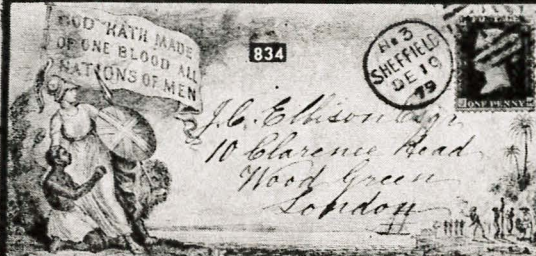 GOD HATH MADE
OF ONE BLOOD ALL
NATIONS OF MEN
834
No 3
SHEFFIELD
DE 19
79
ONE PENNY
J.C. Ellison Esqr
10 Clarence Road
Wood Green
London